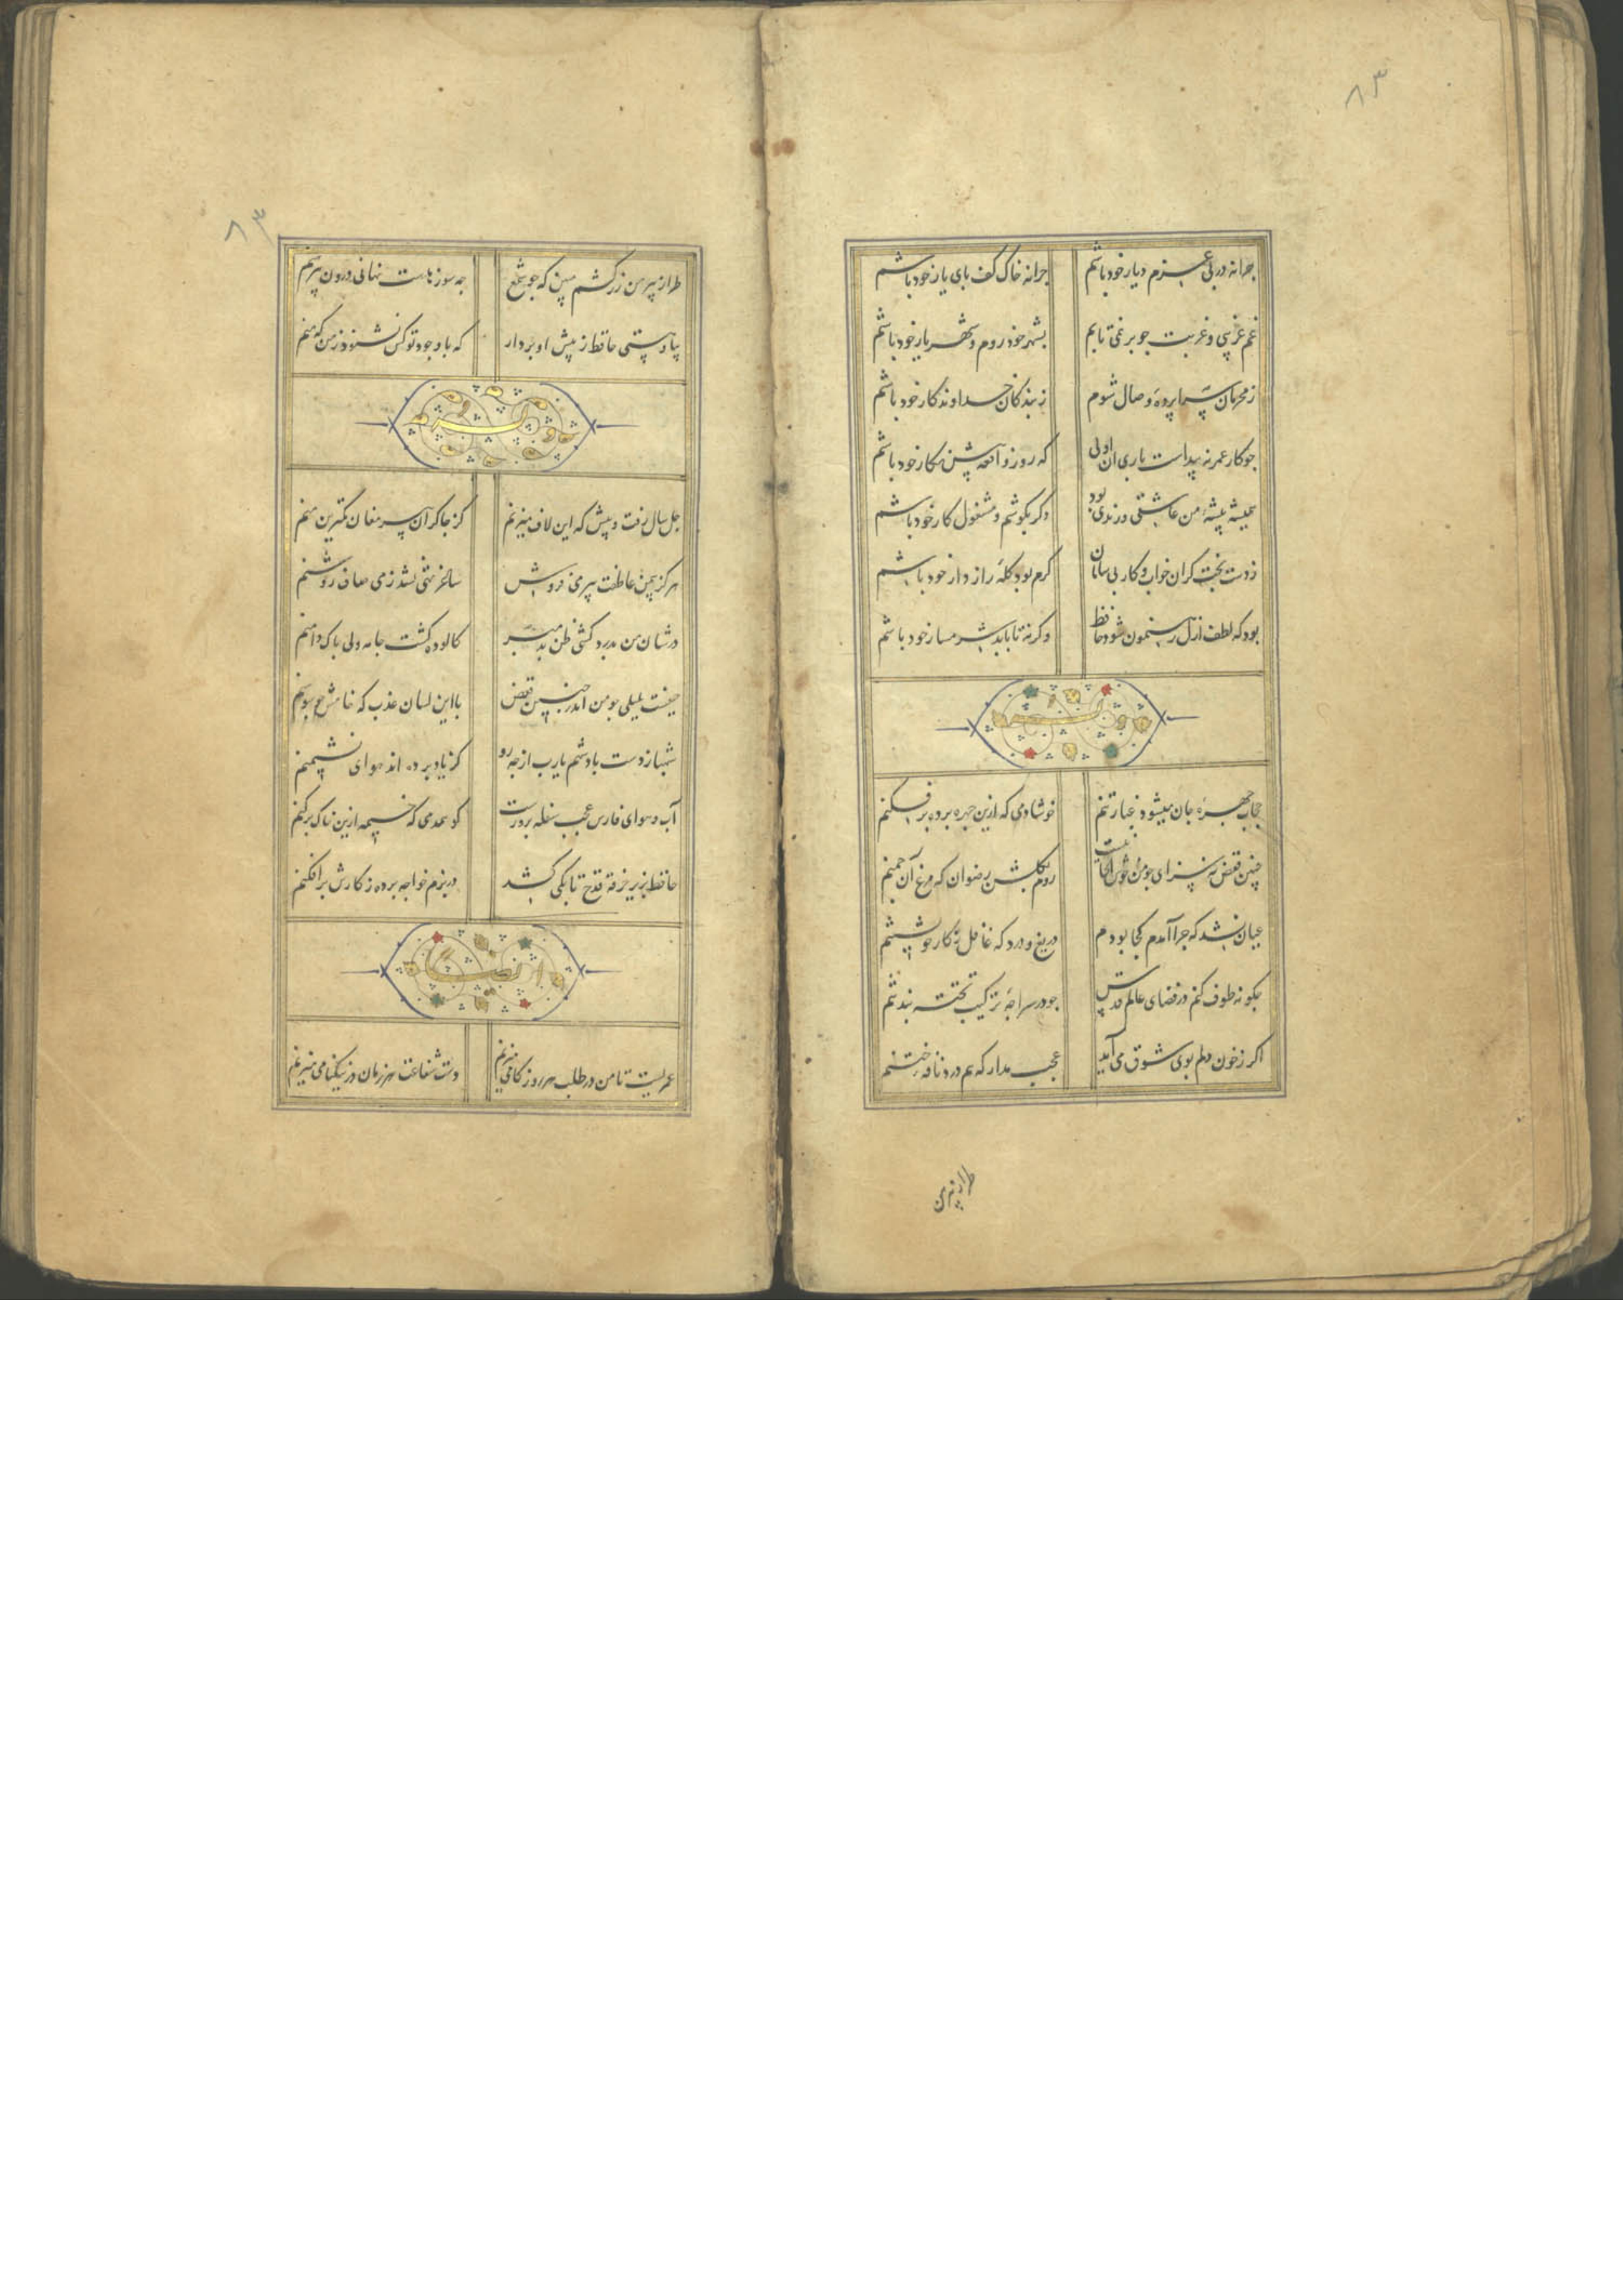 ۸۳
چرا نه در پی عزم دیار خود باشم چرا نه خاک کف پای یار خود باشم
غم غریبی و غربت چو بر نمی تابم بشهر خود روم و شهریار خود باشم
ز محرمان سراپرده وصال شوم ز بندکان خداوندکار خود باشم
چو کار عمر نه پیداست باری آن اولی که روز واقعه پیش نکار خود باشم
همیشه پیشه من عاشقی و رندی بود دکر بکوشم و مشغول کار خود باشم
ز دست بخت کران خواب و کار بی سامان کرم بود کله راز دار خود باشم
بود که لطف ازل رهنمون شود حافظ وکرنه تا بابد شرمسار خود باشم
وله
حجاب چهره جان میشود غبار تنم خوشا دمی که ازین چهره پرده بر فکنم
چنین قفس نه سزای چو من خوش الحانیست روم بکلشن رضوان که مرغ آن چمنم
عیان نشد که چرا آمدم کجا بودم دریغ و درد که غافل ز کار خویشتنم
چکونه طوف کنم در فضای عالم قدس چو در سراچه ترکیب تخته بند تنم
اکر ز خون دلم بوی شوق می آید عجب مدار که هم درد نافه ختنم
طراز پیرهن
۸۳
طراز پیرهن زرکشم مبین که چو شمع چه سوزهاست نهانی درون پیرهنم
بیا و هستی حافظ ز پیش او بردار که با وجود تو کس نشنود ز من که منم
وله
چل سال رفت و پیش که این لاف میزنم کز چاکران پیر مغان کمترین منم
هرکز بیمن عاطفت پیر می فروش ساغر تهی نشد ز می صاف روشنم
در شان من بدرد کشی ظن بد مبر کالوده کشت جامه ولی پاک دامنم
حیفست بلبلی چو من اندر چنین قفس با این لسان عذب که خامش چو سوسنم
شهباز دست پادشهم یارب از چه رو کز یاد برده اند هوای نشیمنم
آب و هوای فارس عجب سفله پرورست کو همدمی که خیمه ازین خاک برکنم
حافظ بزیر خرقه قدح تا بکی کشد در بزم خواجه پرده ز کارش برافکنم
ایضا
عمریست تا من در طلب هر روز کامی میزنم دست شفاعت هر زمان در نیکنامی میزنم